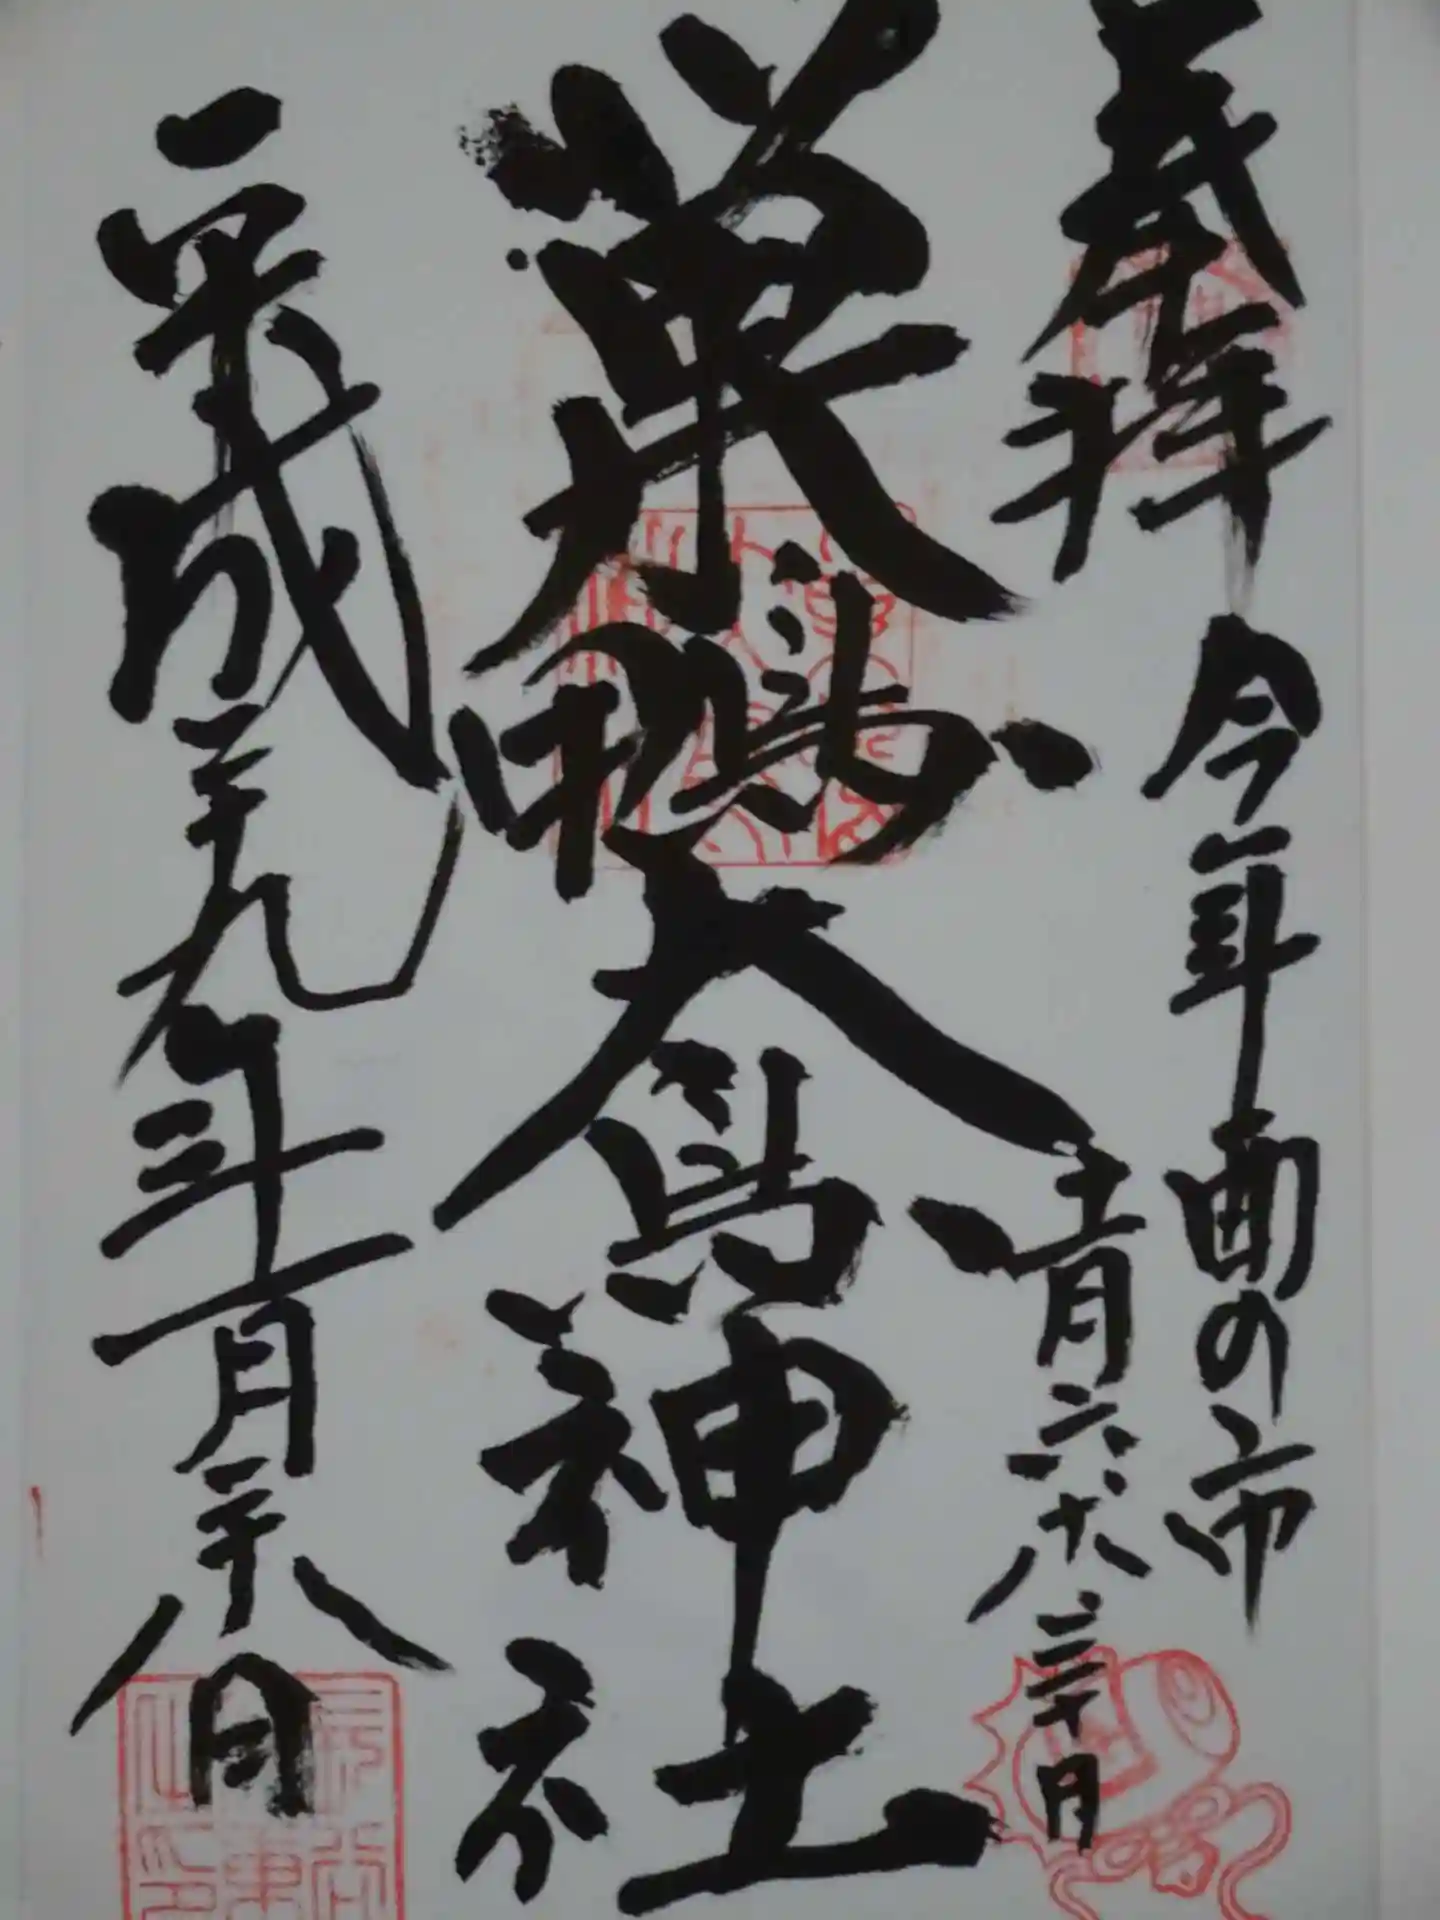 奉拝 今年酉の市
十一月六、十八、三十日
巣鴨大鳥神社
平成二十九年一月二十八日